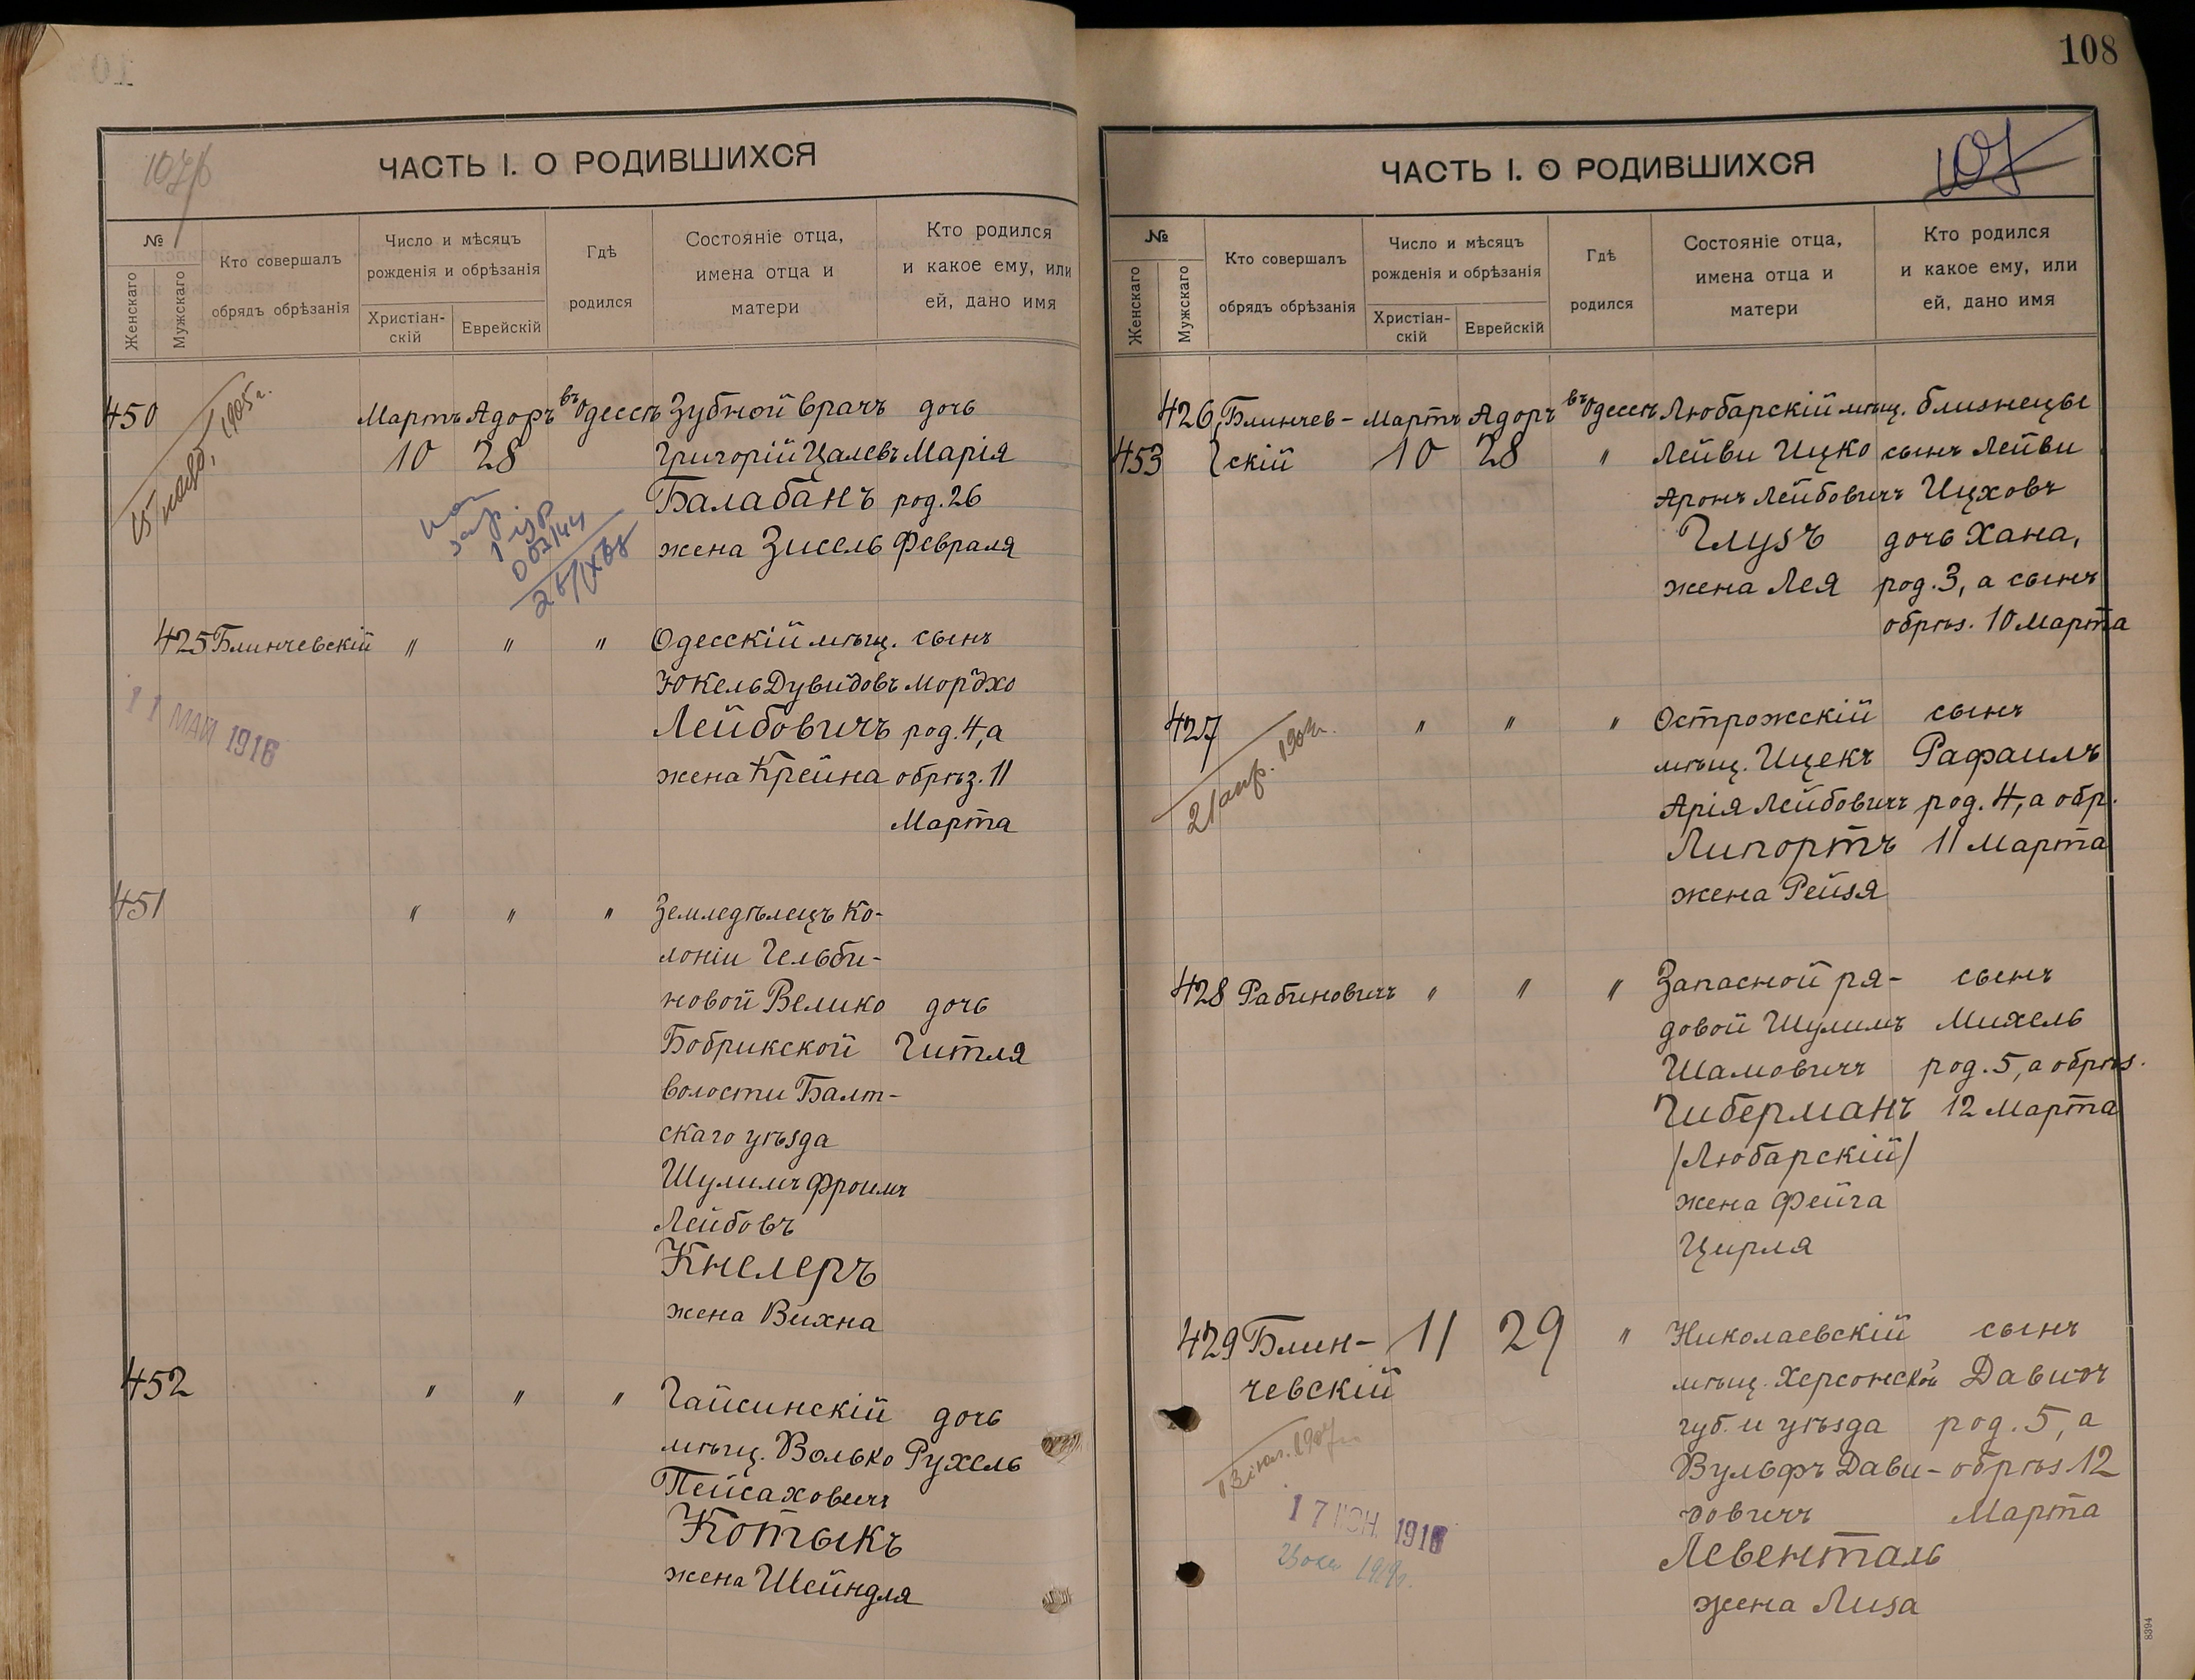 108
ЧАСТЬ I. О РОДИВШИХСЯ
№
Женскаго
Мужскаго
Кто совершалъ
обрядъ обрѣзанія
Число и мѣсяцъ
рожденія и обрѣзанія
Христіан-
скій
Еврейскій
Гдѣ
родился
Состояніе отца,
имена отца и
матери
Кто родился
и какое ему, или
ей, дано имя
450 Мартъ Адоръ въ Одессѣ Зубной врачъ дочь
10 28 Григорій Цалевъ Марія
Балабанъ род. 26
жена Зисель Февраля
1905 г.
425 Блинчевскій " " " Одесскій мѣщ. сынъ
Юкель Дувидовъ Мордхо
Лейбовичъ род. 4, а
жена Крейна обрѣз. 11
Марта
11 МАЙ 1916
451 " " " Земледѣлецъ ко-
лоніи Гельби-
новой Велико дочь
Бобрикской Гитля
волости Балт-
скаго уѣзда
Шулимъ Фроимъ
Лейбовъ
Кнелеръ
жена Вихна
452 " " " Гайсинскій дочь
мѣщ. Волько Рухель
Пейсаховичъ
Котыкъ
жена Шейндля
ЧАСТЬ I. О РОДИВШИХСЯ
107
№
Женскаго
Мужскаго
Кто совершалъ
обрядъ обрѣзанія
Число и мѣсяцъ
рожденія и обрѣзанія
Христіан-
скій
Еврейскій
Гдѣ
родился
Состояніе отца,
имена отца и
матери
Кто родился
и какое ему, или
ей, дано имя
426 Блинчев- Мартъ Адоръ въ Одессѣ Любарскій мѣщ. близнецы
453 скій 10 28 " Лейви Ицко сынъ Лейви
Аронъ Лейбовичъ Ицховъ
Глузъ дочь Хана,
жена Лея род. 3, а сынъ
обрѣз. 10 Марта
427 " " " Острожскій сынъ
мѣщ. Ицекъ Рафаилъ
Арія Лейбовичъ род. 4, а обр.
Липортъ 11 Марта
жена Рейзя
21 апр.
428 Рабиновичъ " " " Запасной ря- сынъ
довой Шулимъ Михель
Шамовичъ род. 5, а обрѣз.
Гиберманъ 12 Марта
/Любарскій/
жена Фейга
Цирля
429 Блин- 11 29 " Николаевскій сынъ
чевскій мѣщ. Херсонской Давидъ
губ. и уѣзда род. 5, а
Вульфъ Дави- обрѣз 12
довичъ Марта
Левенталь
жена Лиза
17 ІЮН 1916
8394